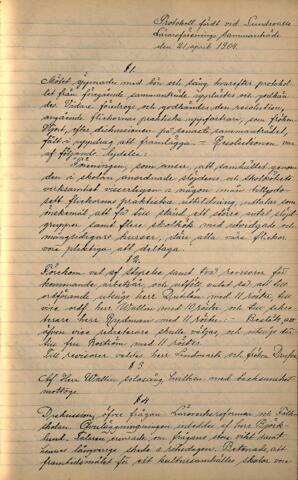 Protokoll fördt vid Sundsvalls
Lärareförenings sammanträde
den 21 april 1904.
§1.
Mötet öppnades med bön och sång hvarefter protokol-
let från föregående sammanträde upplästes och godkän-
des. Vidare föredrogs och godkändes den resolution,
angående flickornas praktiska uppfostran, som fröken
Hjort, efter diskussionen på senaste sammanträdet,
fått i uppdrag att framlägga. – Resolutionen var
af följande lydelse:
"Föreningen, som anser, att samhället genom
den i skolan anordnade slöjden och skolkökets
verksamhet visserligen i någon mån tillgodo-
sett flickornas praktiska utbildning, uttalar som
önskemål att få till stånd ett större antal slöjd-
grupper samt flera skolkök med utvidgade och
mångsidigare kurser, däri alla våra flickor
vore pliktiga att deltaga."
§2.
Förekom val af styrelse samt två revisorer för
kommande arbetsår, och utföll valet så, att till
ordförande utsågs herr med 11 röster, till
vice ordf. herr Wallin med 10 röster och till sekre-
terare herr med 11 röster. – Beslöts att
äfven vice sekreterare skulle väljas, och utsågs där-
till fru Boström med 11 röster.
Till revisorer valdes herr Lindmark och fröken
§3
Af Herr Wallin solosång hvilken med tacksamhet
mottogs.
§4
Diskussion öfver frågan Läroverksreformen och Folk-
skolan. Öfverläggningen inleddes af herr Björk-
lund. Talaren erinrade om frågans stora vikt
hennes långvariga skede i riksdagen. Betonade, att
framtidsmålet för ett kultursamhälles skolor vore